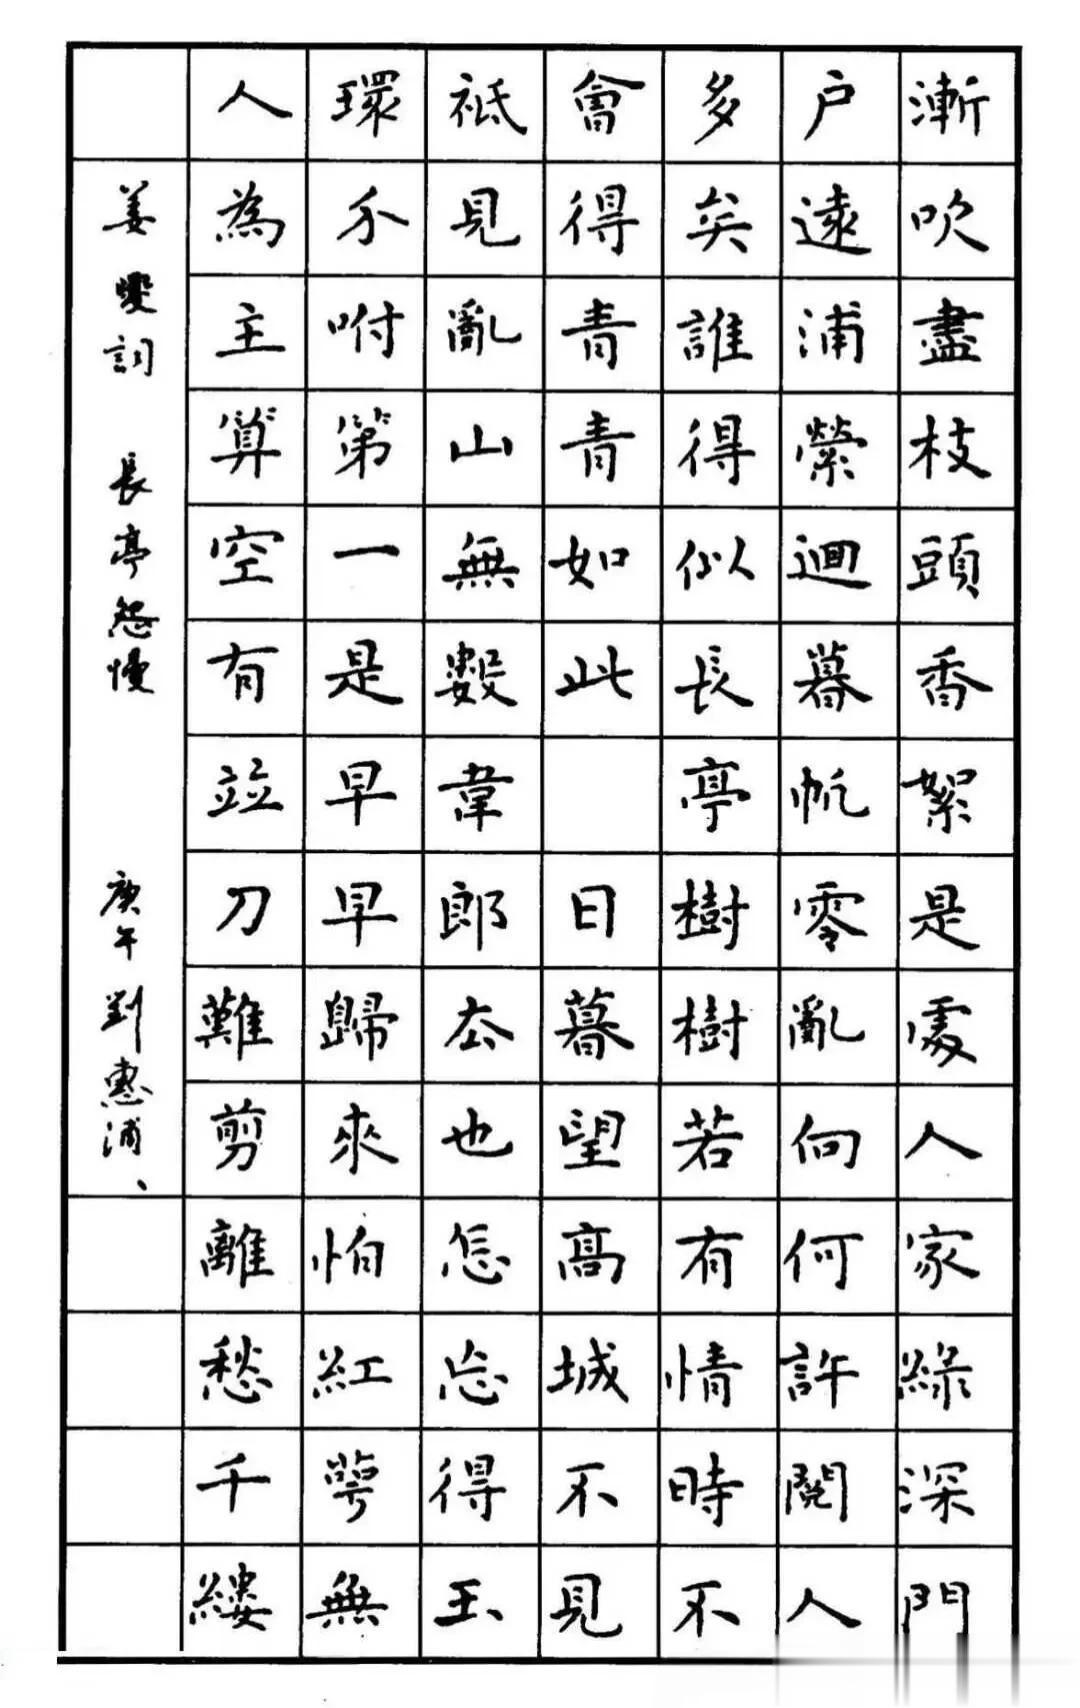 漸吹盡枝頭香絮是處人家綠深門
户遠浦縈迴暮帆零亂向何許閱人
多矣誰得似長亭樹樹若有情時不
會得青青如此 日暮望高城不見
祗見亂山無數韋郎去也怎忘得玉
環分咐第一是早早歸來怕紅萼無
人為主算空有並刀難剪離愁千縷
姜夔詞 長亭怨慢 庚午劉惠浦、